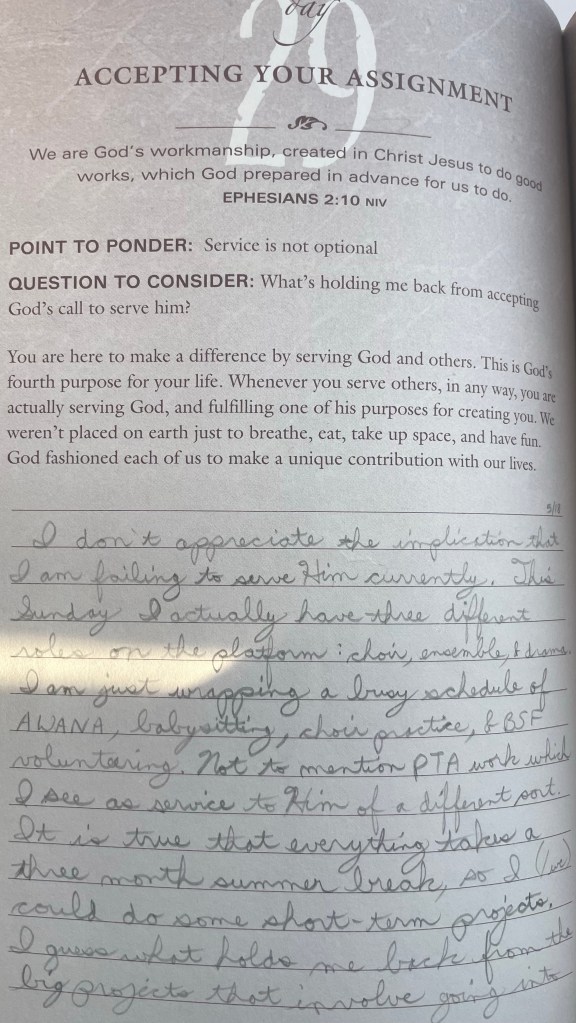 day
29
ACCEPTING YOUR ASSIGNMENT
We are God's workmanship, created in Christ Jesus to do good
works, which God prepared in advance for us to do.
EPHESIANS 2:10 NIV
POINT TO PONDER: Service is not optional
QUESTION TO CONSIDER: What's holding me back from accepting
God's call to serve him?
You are here to make a difference by serving God and others. This is God's
fourth purpose for your life. Whenever you serve others, in any way, you are
actually serving God, and fulfilling one of his purposes for creating you. We
weren't placed on earth just to breathe, eat, take up space, and have fun.
God fashioned each of us to make a unique contribution with our lives.
5/18
I don't appreciate the implication that
I am failing to serve Him currently. This
Sunday I actually have three different
roles on the platform: choir, ensemble, & drama.
I am just wrapping a busy schedule of
AWANA, babysitting, choir practice, & BSF
volunteering. Not to mention PTA work which
I see as service to Him of a different sort.
It is true that everything takes a
three month summer break, so I (/we)
could do some short-term projects.
I guess what holds me back from the
big projects that involve going into